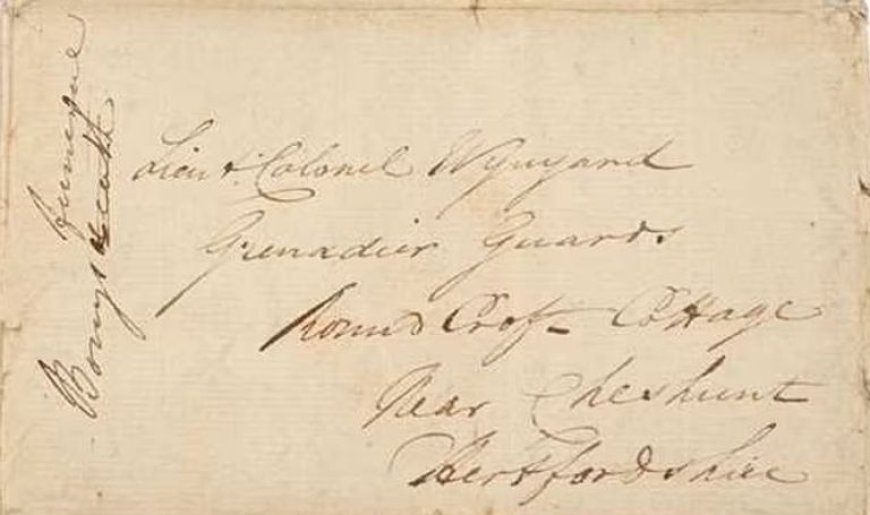 Lieut. Colonel Wynyard
Grenadier Guards
Round Croft Cottage
Near Cheshunt
Hertfordshire
Bonys death